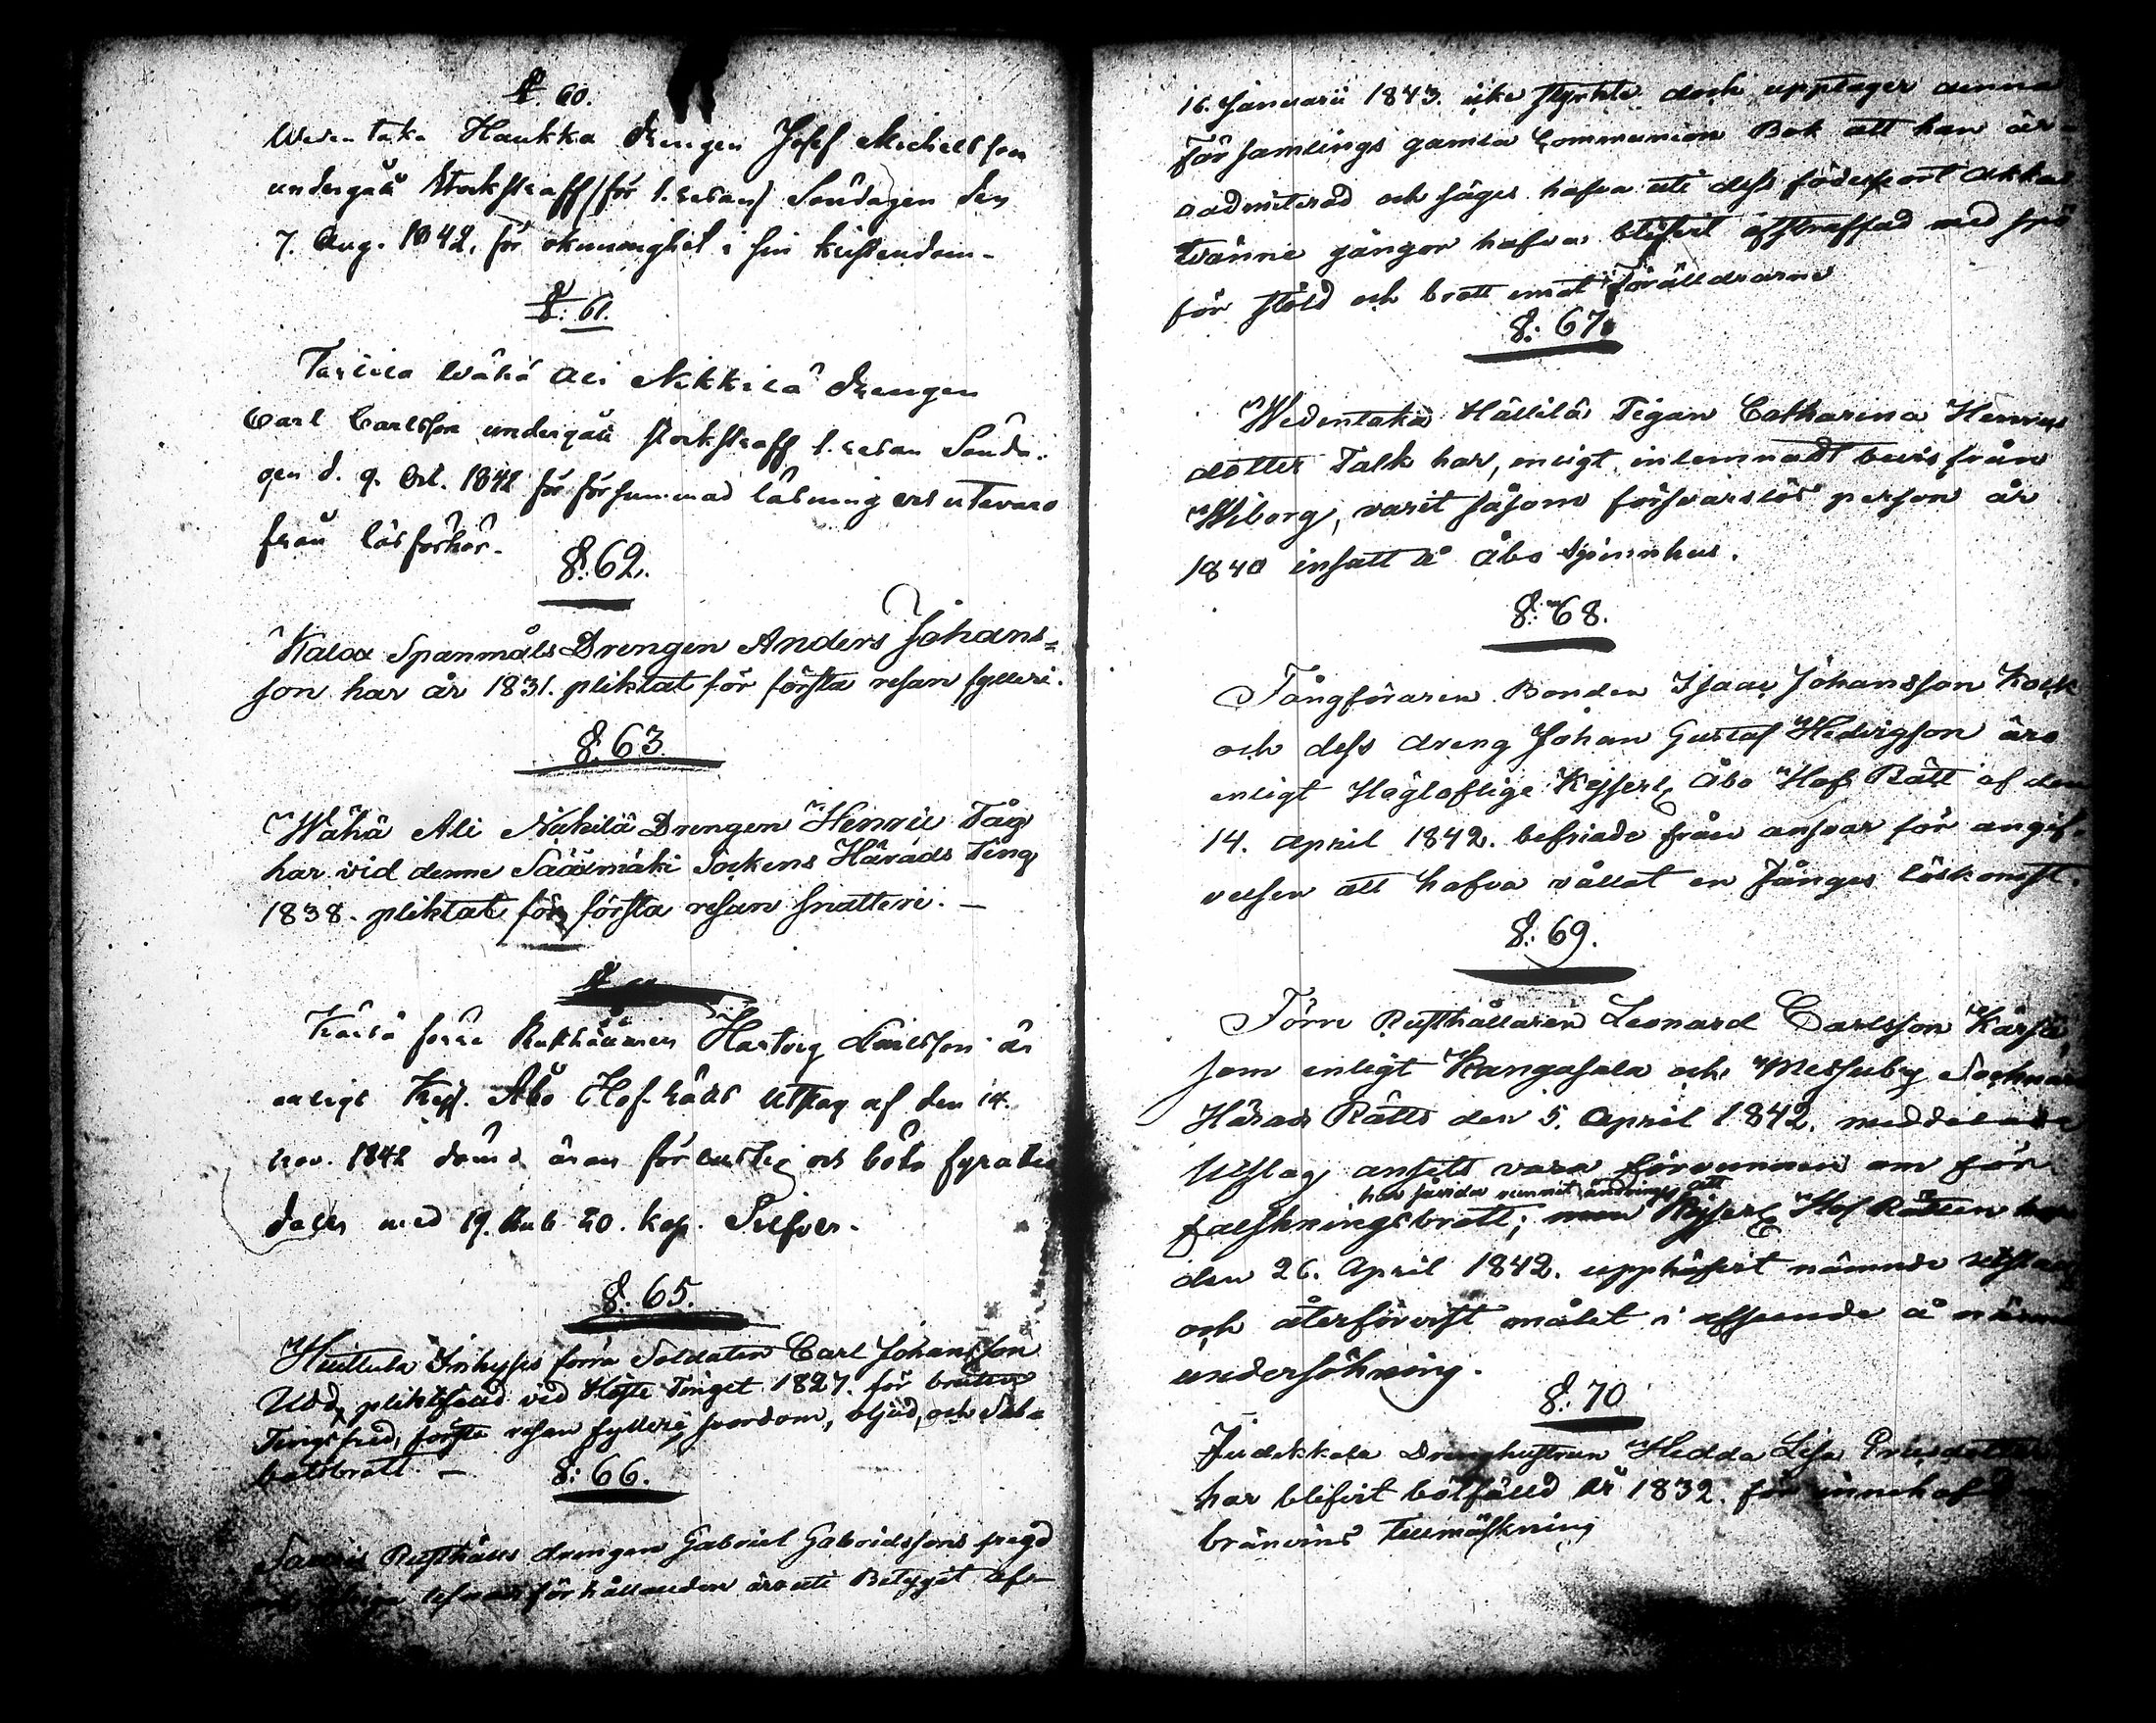 §. 60.
Wedentaka Haukka Drengen Josef Michelsson
undergått stockstraff (för 1. resan) Söndagen den
7. Aug. 1842, för okunnighet i sin kristendom.
§: 61.
Tarlila Wähä Ali Nikkilä Drengen
Carl Carlsson undergått stockstraff 1. resan Sönda-
gen d. 9. Oct. 1842 för försummad läsning och utevaro
från läsförhör.
§: 62.
Kaloa Spanmåls Drengen Anders Johans=
son har år 1831. pliktat för första resan fylleri.
§. 63.
Wähä Ali Nikilä Drengen Henric Tåg
har vid denne Sääxmäki Sockens Härads Ting
1838. pliktat för första resan snatteri. —
Kärsä förre Rusthållaren Hartvig Carlsson är
enligt Kejs. Åbo Hof-Rätts Utslag af den 14.
nov. 1842 dömd äran förlustig och böta fyratio
daler med 19. Rub. 20. kop. Silfver.
§. 65.
Huittula Inhyses förra Soldaten Carl Johansson
Udd, pliktfälld vid Höste Tinget 1827. för bruten
Tingsfred, första resan fylleri, svordom, oljud, och Sab-
batsbrott. —
§: 66.
Rusthålls drengen Gabriel Gabrielssons fregd
förhållanden äro uti Betyget af
16. Januarii 1843. icke styrkte doch upptager denna
Församlings gamla Communion Bok att han är
oadmitterad och säges hafva uti dess födelseort Akkas
tvänne gångor hafva blifvit afstraffad med spö
för stöld och brott emot Föräldrarne
§: 67.
Wedentaka Hällilä Pigan Catharina Henrics
dotter Falk har, enligt inlemnadt bevis från
Wiborg, varit såsom försvarslös person år
1840 insatt å Åbo Spinnhus.
§: 68.
Fångföraren Bonden Isaac Johansson Kock
och dess dreng Johan Gustaf Hedvigson äro
enligt Högloflige Kejserl. Åbo Hof Rätt af den
14. April 1842. befriade från ansvar för angif-
velsen att hafva vållat en fånges löskomst.
§: 69.
Förre Rusthållaren Leonard Carlsson Kärsä,
som enligt Kangasala och Messuby Socknars
Härads Rätts den 5. April 1842. meddelade
Utslag ansets vara förvunnen om för-
har såvida vunnit ändring, att
falskningsbrott; men Kejserl. Hof Rätten har
den 26. April 1842. upphäfvit nämnde utslag
och återförvist målet i afseende å närmare
undersökning.
§: 70
Judikkala Drenghustrun Hedda Lisa
har blifvit bötfälld år 1832. för innehafd
bränvins tillmäskning